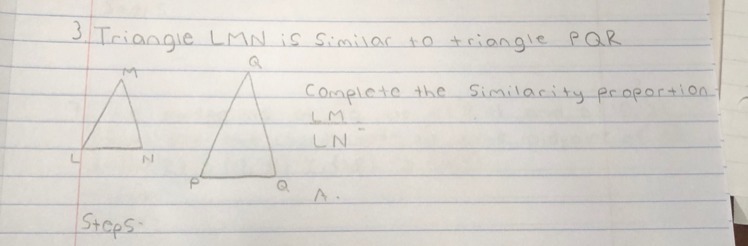 3. Triangle LMN is similar to triangle PQR
M
Q
Complete the Similarity proportion
LM
LN =
L
N
P
Q
A.
Steps.